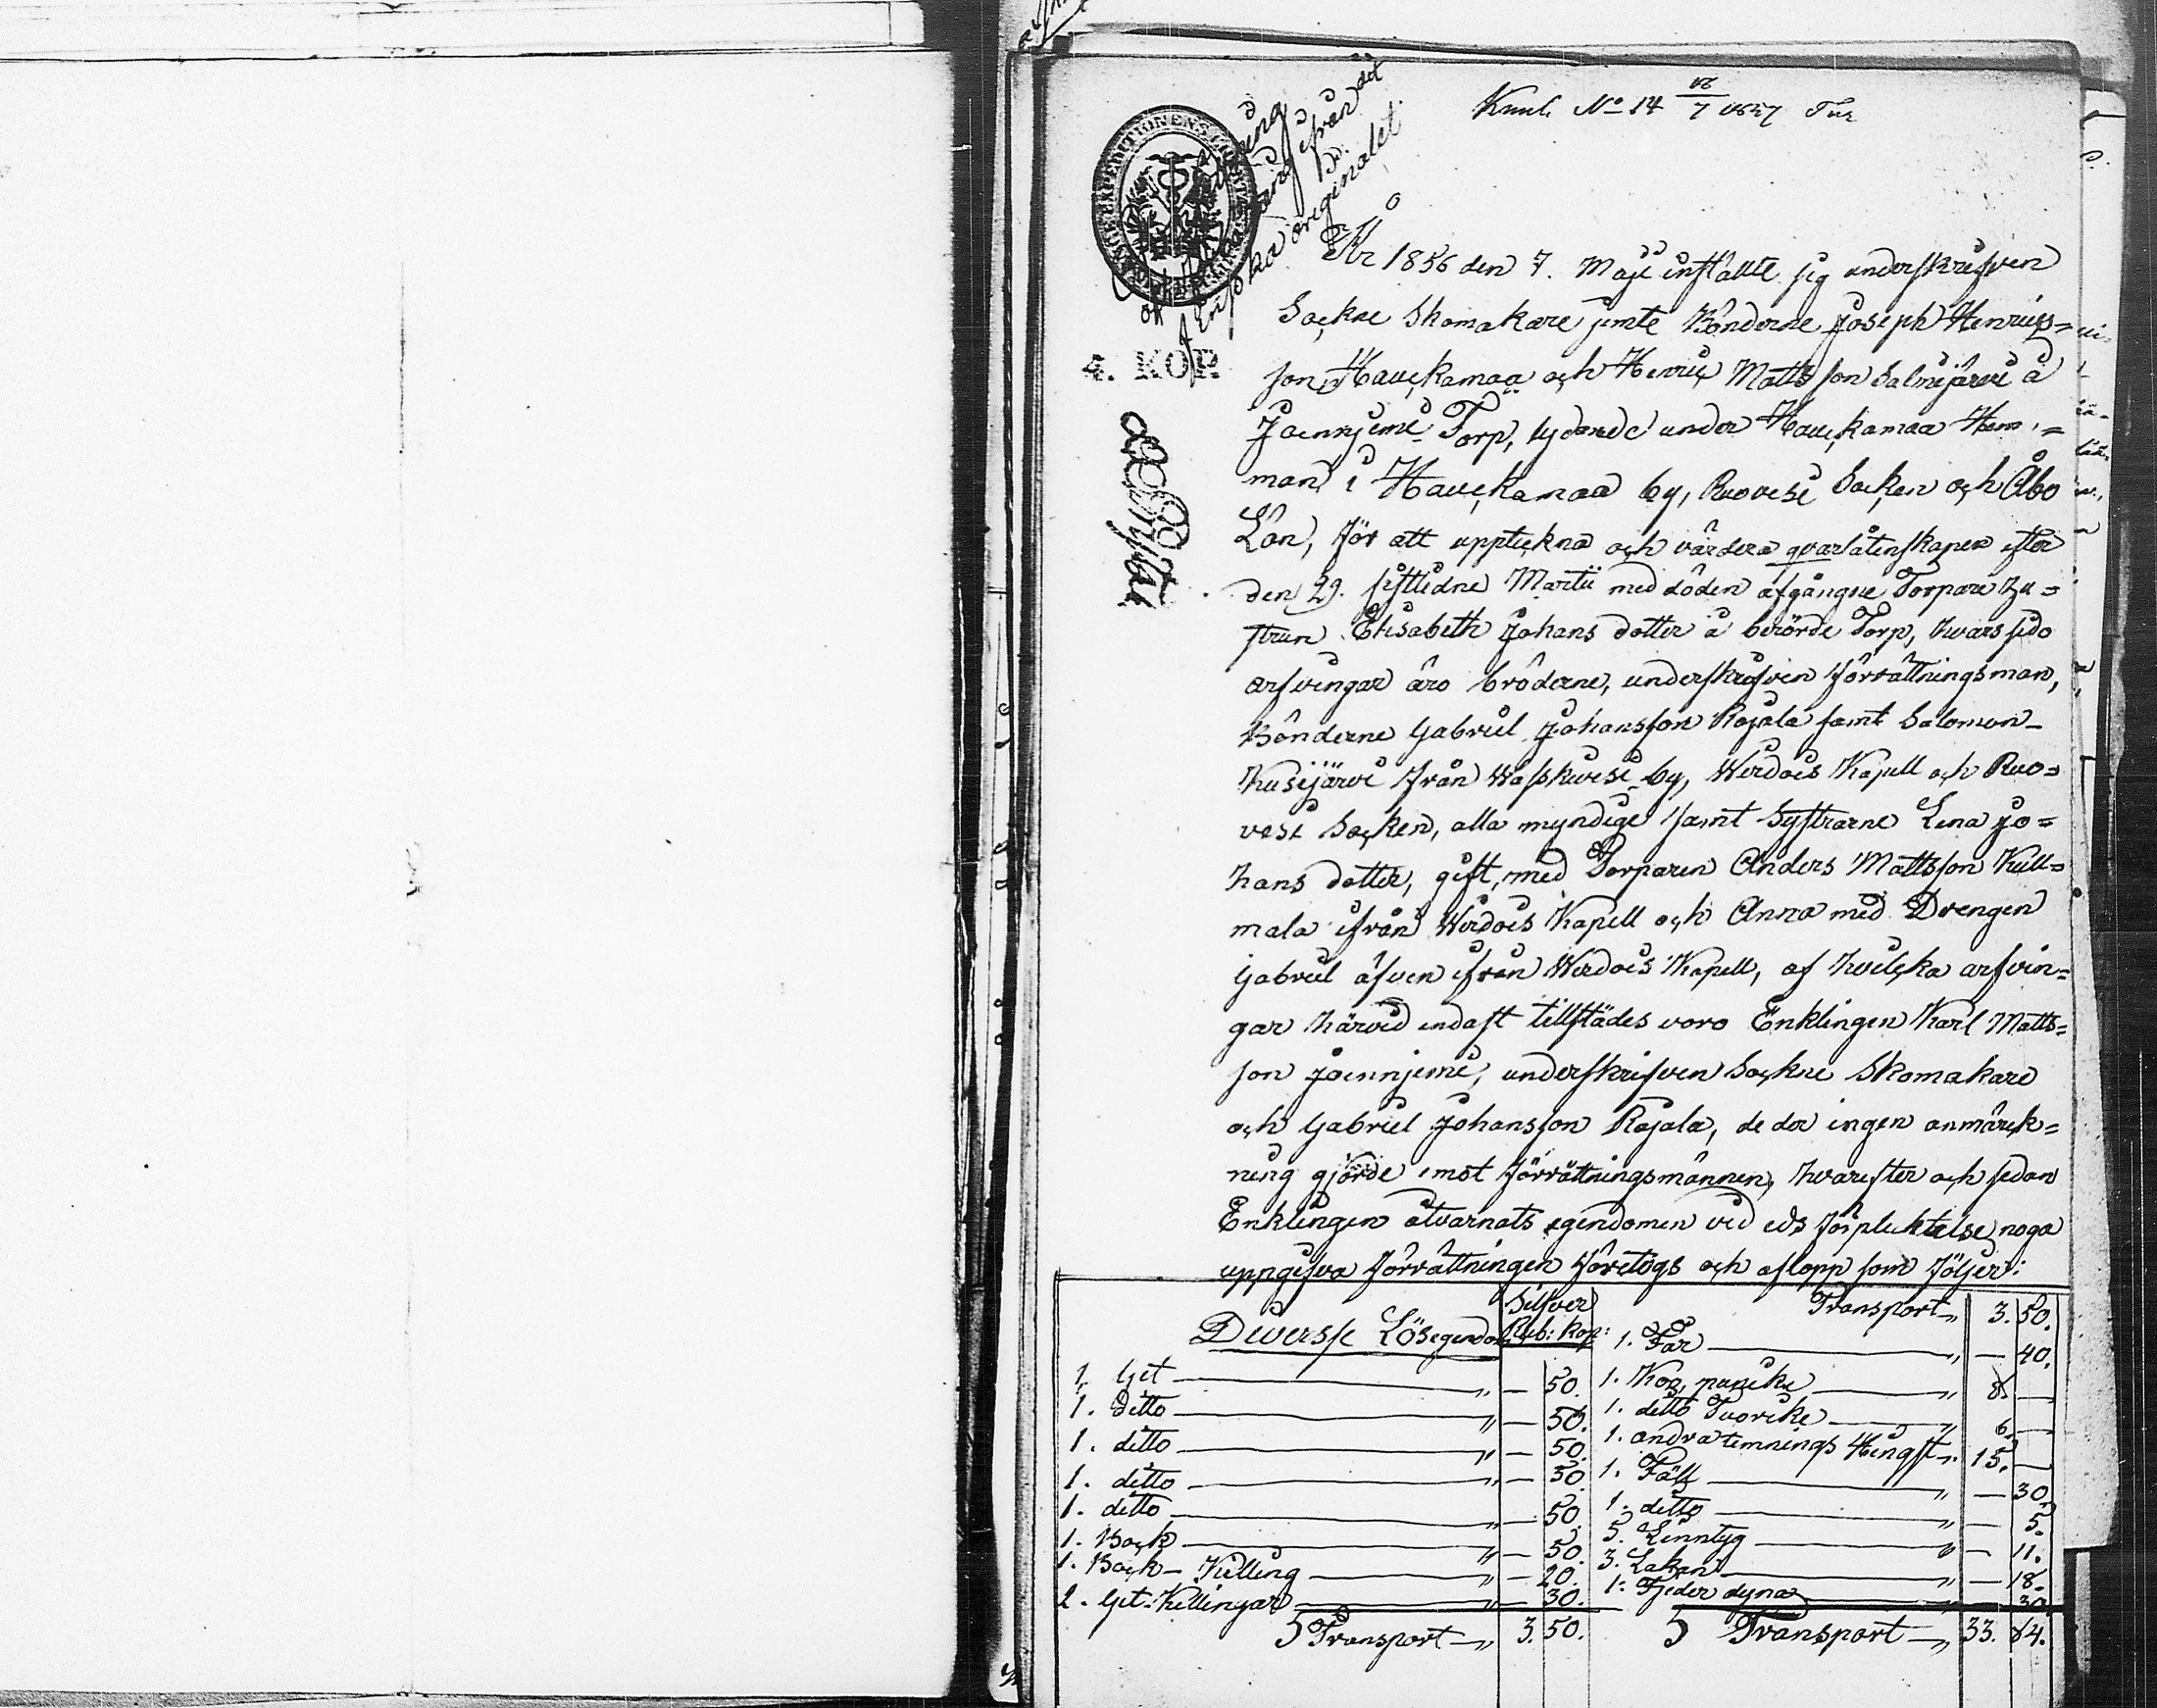 Kunl. No 14 16/7 1857
ifrån det
originalet
4. KOP.
År 1856 den 7. Maji instälte sig underskrifven
Sockne Skomakare jemte Bönderne Joseph Henrics=
son Hauckamaa och Henric Mattsson Salmijärvi å
Joennjemi Torp, lydande under Hauckamaa Hem=
man i Hauckamaa by, Ruovesi Socken och Åbo
Län, för att uppteckna och värdera qvarlåtenskapen efter
den 29. sistledne Martii med döden afgångne Torpare hu=
strun Elisabeth Johans dotter å berörde Torp, hvars sido
arfvingar äro bröderne, underskrifven förrättningsman,
Bönderne Gabriel Johansson Rajala samt Salomon
Kusijärvi från Waskivesi by, Wirdois Kapell och Ruo=
vesi Socken, alla myndige samt Systrarne Lena Jo=
hans dotter, gift med Torparen Anders Mattsson Kull=
mala ifrån Wirdois Kapell och Anna med Drengen
Gabriel äfven ifrån Wirdois Kapell, af hvilcka arfvin=
gar härvid endast tillstädes voro Enklingen Karl Matts=
son Joennjemi, underskrifven Sockne Skomakare
och Gabriel Johansson Rajala, de der ingen anmärck=
ning gjorde emot förrättningsmännen, hvarefter och sedan
Enklingen åtvarnats egendomen vid eds förplichtelse noga
uppgifva förrättningen företogs och aflopp som följer:
Diverse Lösegendom Silfver Rub: Kop:
1. Get — " — 50.
1. Ditto — " — 50.
1. ditto — " — 50.
1. ditto — " — 50.
1. ditto — " — 50.
1. Bock — " — 50.
1. Bock-Killing — " — 20.
2. Get-Killingar — " — 30.
Transport — " 3. 50.
Transport " 3. 50.
1. Får — " — 40.
1. Ko, — " 8. —
1. ditto Tuorike — " 6. —
1. andra temnings Hingst " 15. —
1. Fäll — " — 30.
1. ditto — " — 5.
5. Linntyg — " — 11.
3. Lakan — " — 18.
1. Fjeder dyna — 30.
Transport — " 33. 84.